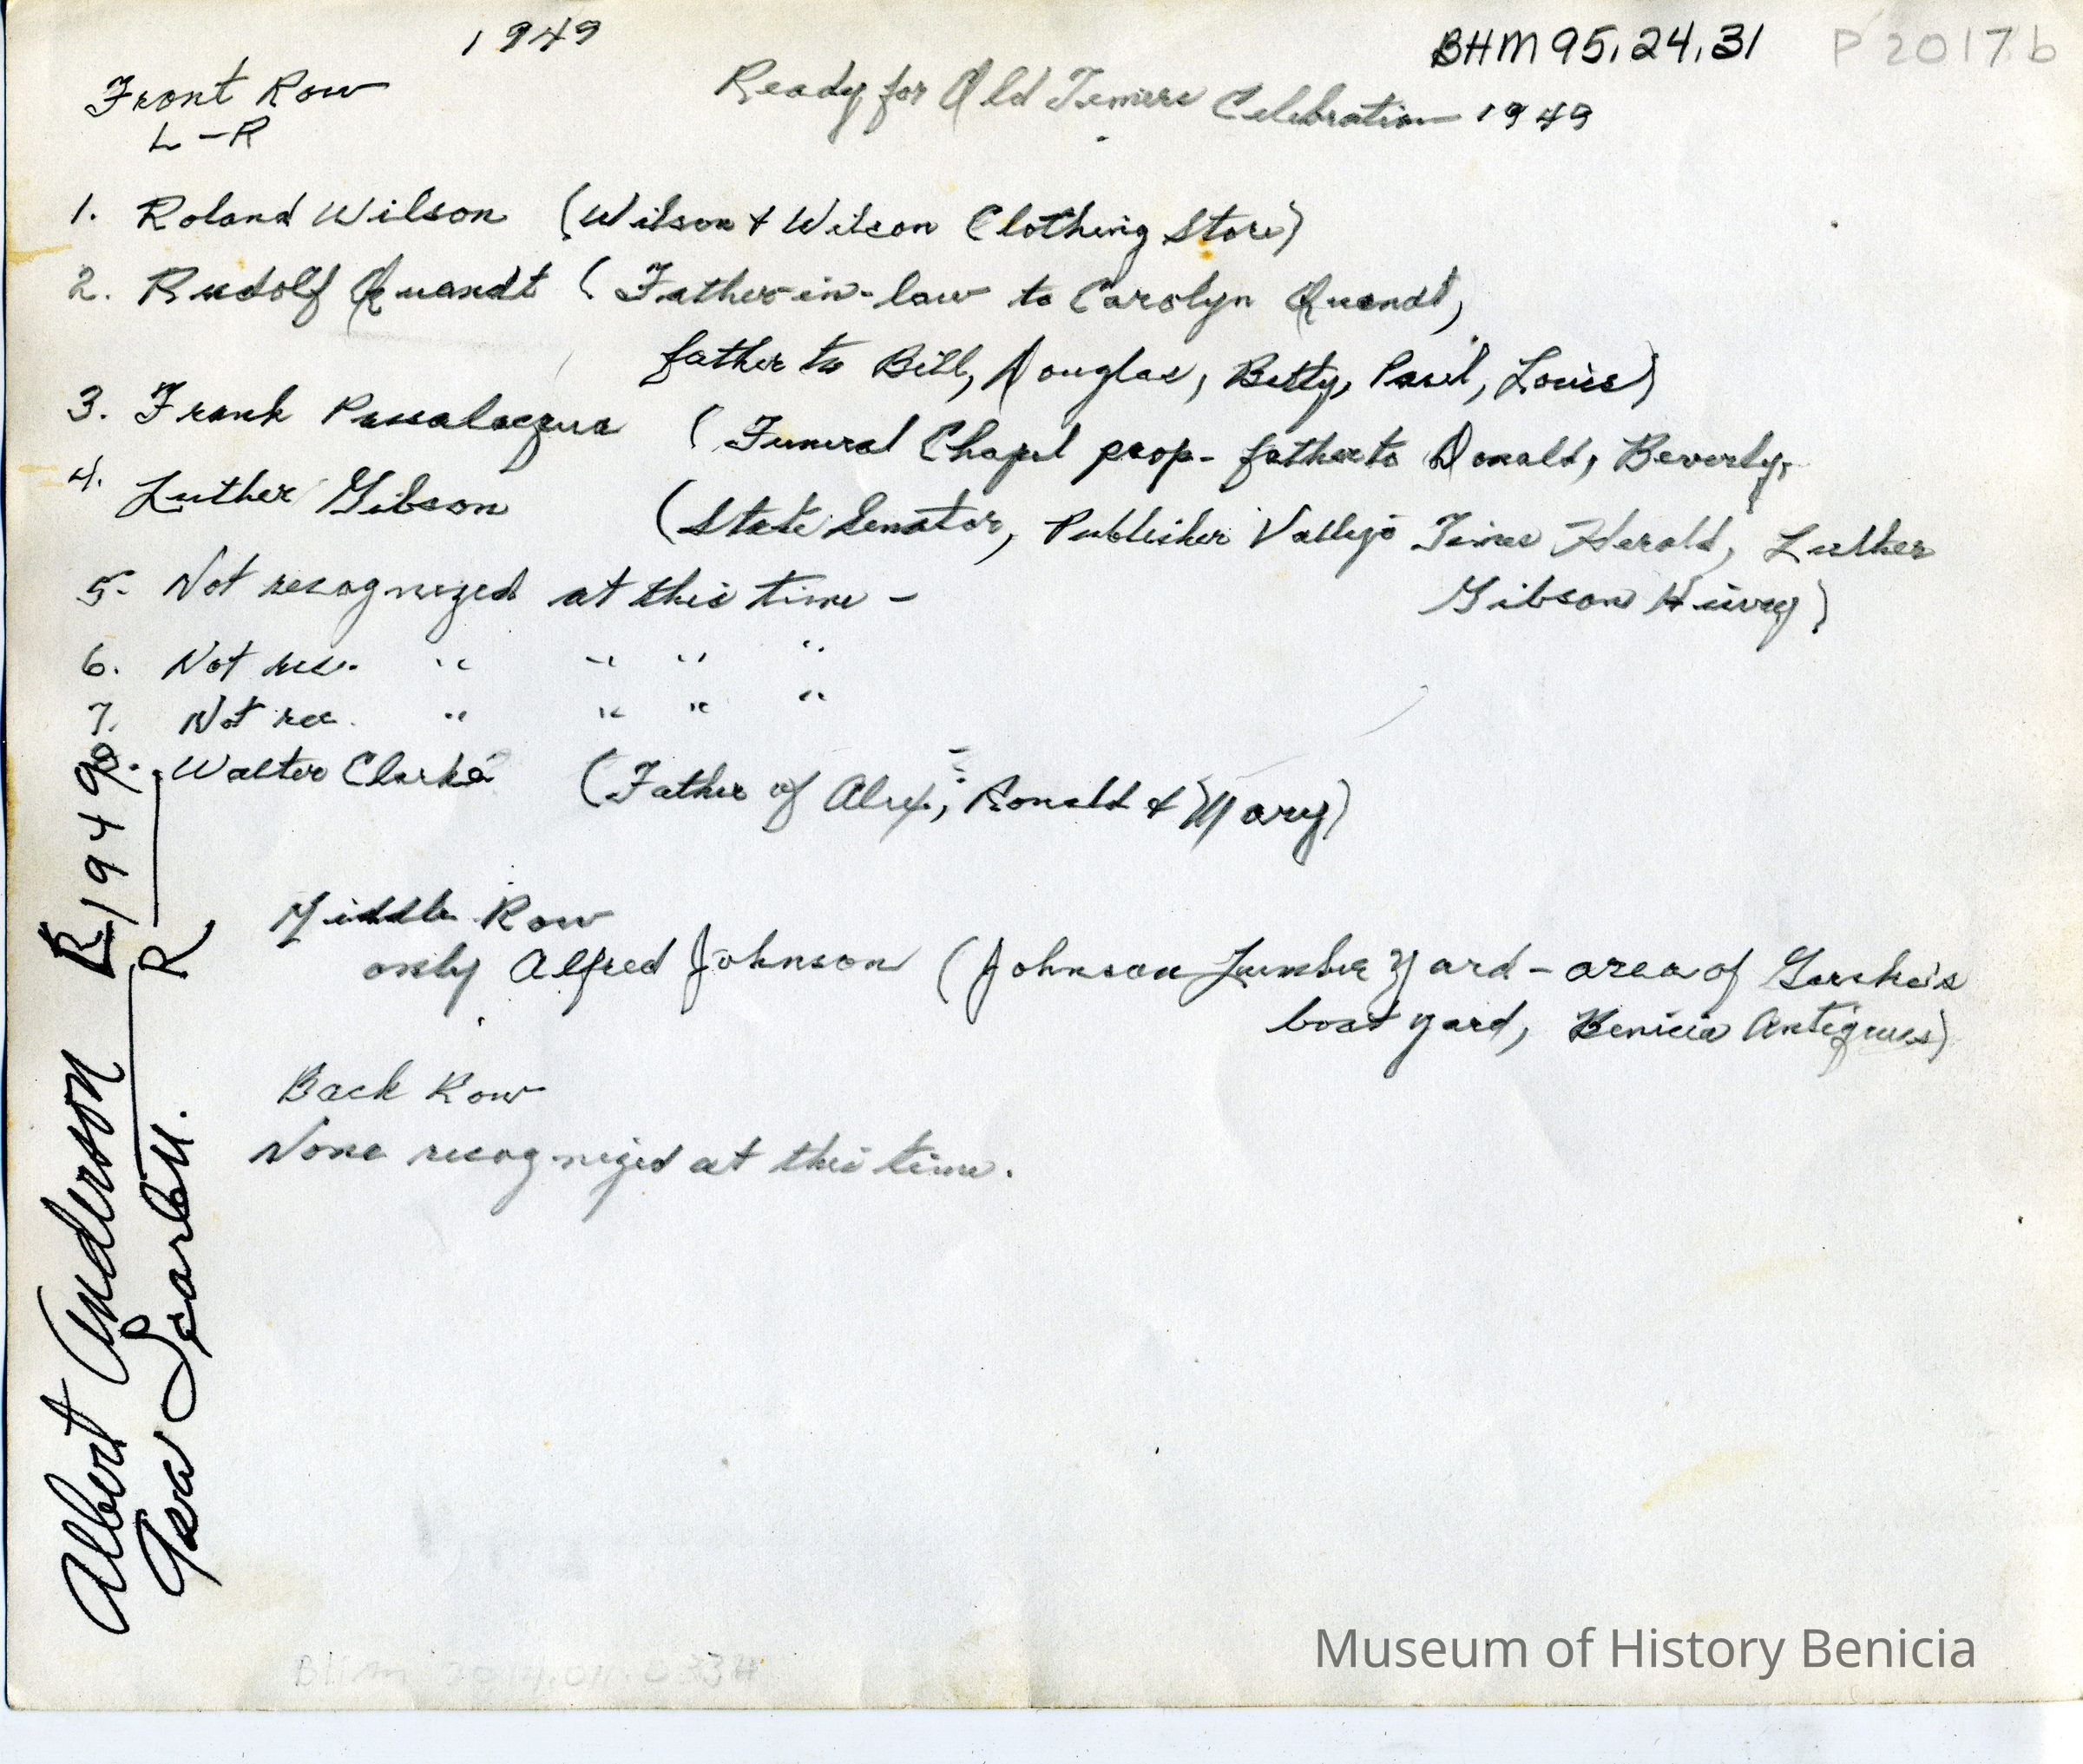 1949
BHM 95.24.31
P 2017b
Front Row
Ready for Old Timers Celebration 1949
L-R
1. Roland Wilson (Wilson + Wilson Clothing Store)
2. Rudolf Quandt (Father-in-law to Carolyn Quandt,
father to Bill, Douglas, Betty, Paul, Louis)
3. Frank Passalacqua (Funeral Chapel prop- father to Donald, Beverly,
4. Luther Gibson (State Senator, Publisher Vallejo Times Herald, Luther
Gibson Hiway)
5. Not recognized at this time -
6. Not rec. " " " "
7. Not rec. " " " "
8. Walter Clarke (Father of Alex, Ronald + Mary)
Middle Row
only Alfred Johnson (Johnson Lumber Yard - area of
boat yard, Benicia Antiques)
Back Row
None recognized at this time.
Albert Anderson R 1949
R
BHM 2014.01.0334
Museum of History Benicia